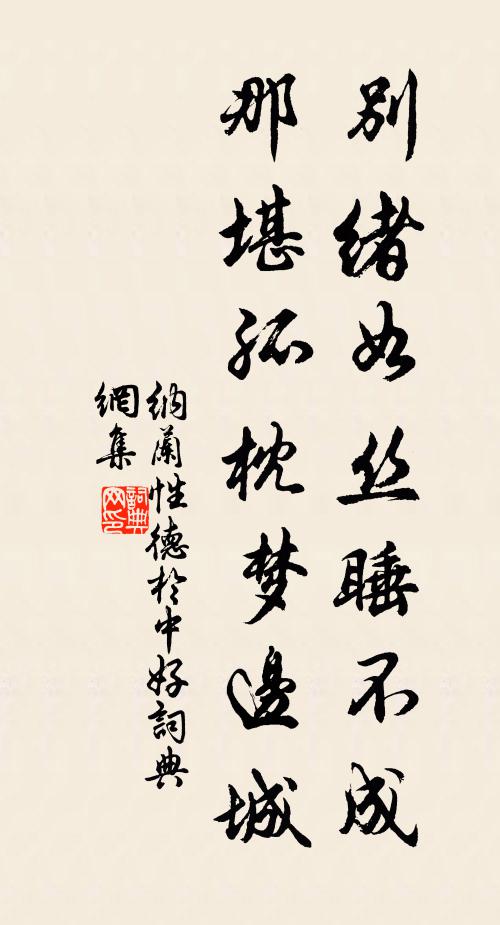 别緒如丝睡不成
那堪孤枕梦邊城
納蘭性德於中好詞典
網集
詞典網印